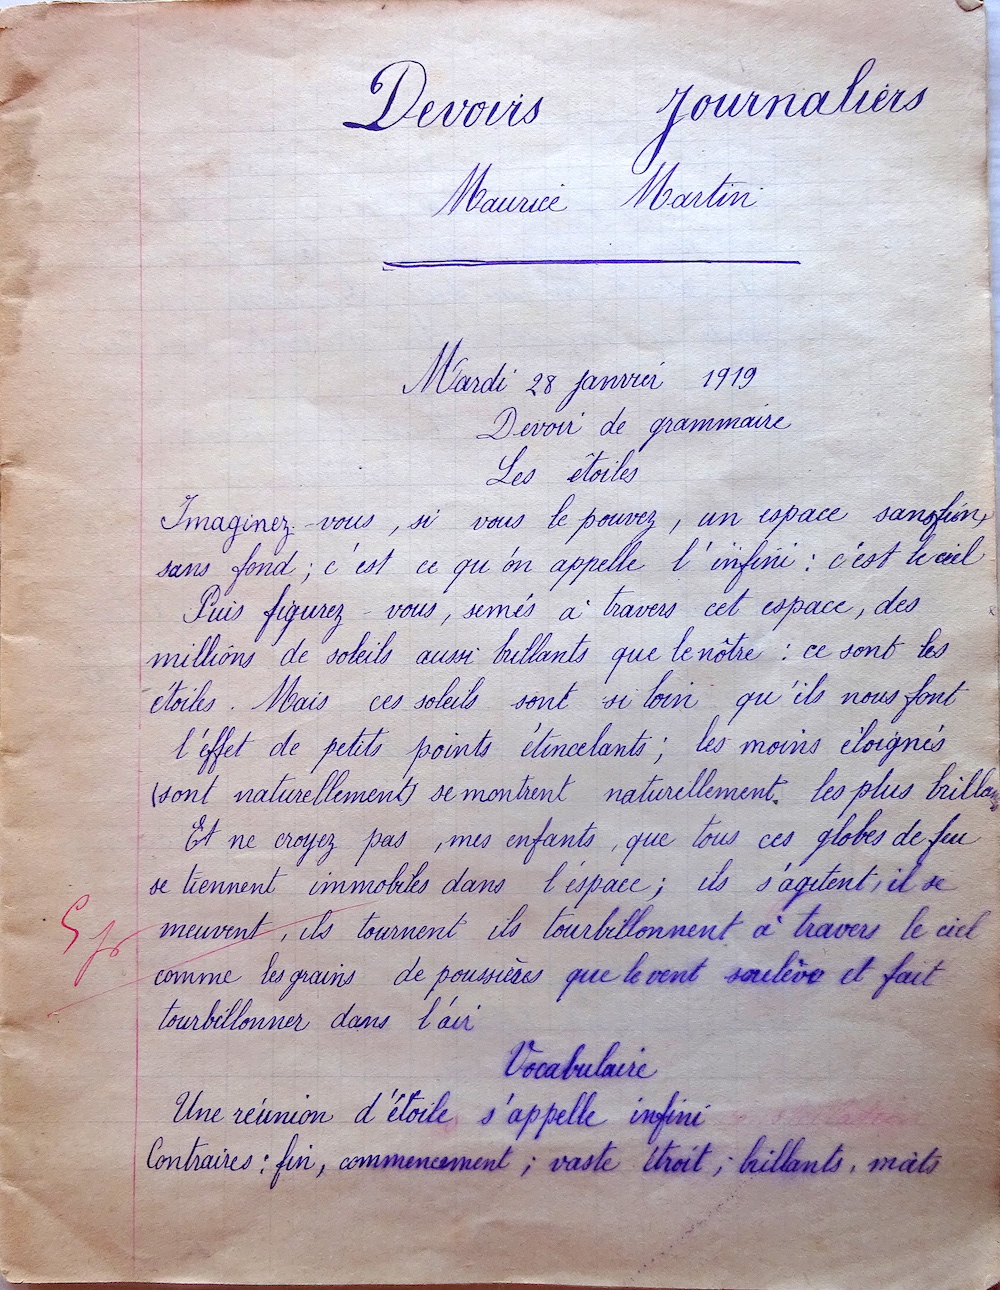 Devoirs Journaliers
Maurice Martin
Mardi 28 janvier 1919
Devoir de grammaire
Les étoiles
Imaginez-vous, si vous le pouvez, un espace sans fin,
sans fond ; c'est ce qu'on appelle l'infini : c'est le ciel
Puis figurez-vous, semés à travers cet espace, des
millions de soleils aussi brillants que le nôtre : ce sont les
étoiles. Mais ces soleils sont si loin qu'ils nous font
l'effet de petits points étincelants ; les moins éloignés
(sont naturellement) se montrent naturellement. les plus brillants
Et ne croyez pas, mes enfants, que tous ces globes de feu
se tiennent immobiles dans l'espace ; ils s'agitent, il se
meuvent, ils tournent ils tourbillonnent à travers le ciel
comme les grains de poussières que le vent soulève et fait
tourbillonner dans l'air
Vocabulaire
Une réunion d'étoile s'appelle infini
Contraires : fin, commencement ; vaste étroit ; brillants, mats